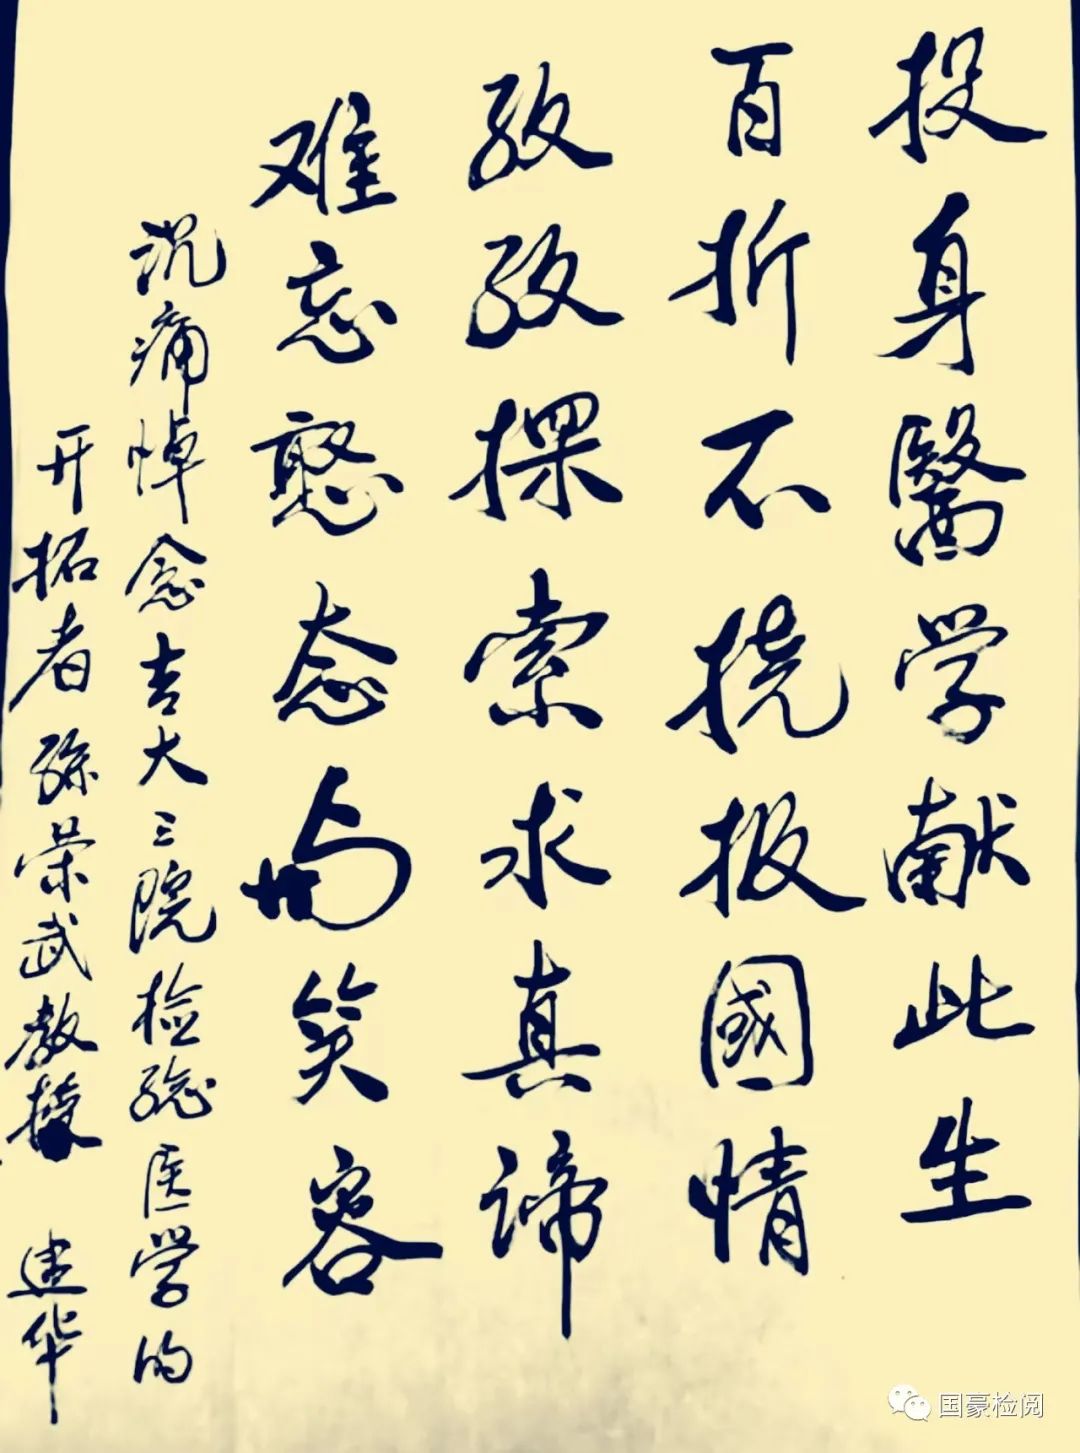 投身醫学献此生
百折不挠报國情
孜孜探索求真谛
难忘憨态与笑容
沉痛悼念吉大三院检验医学的
开拓者孙荣武教授 建华
国豪检阅